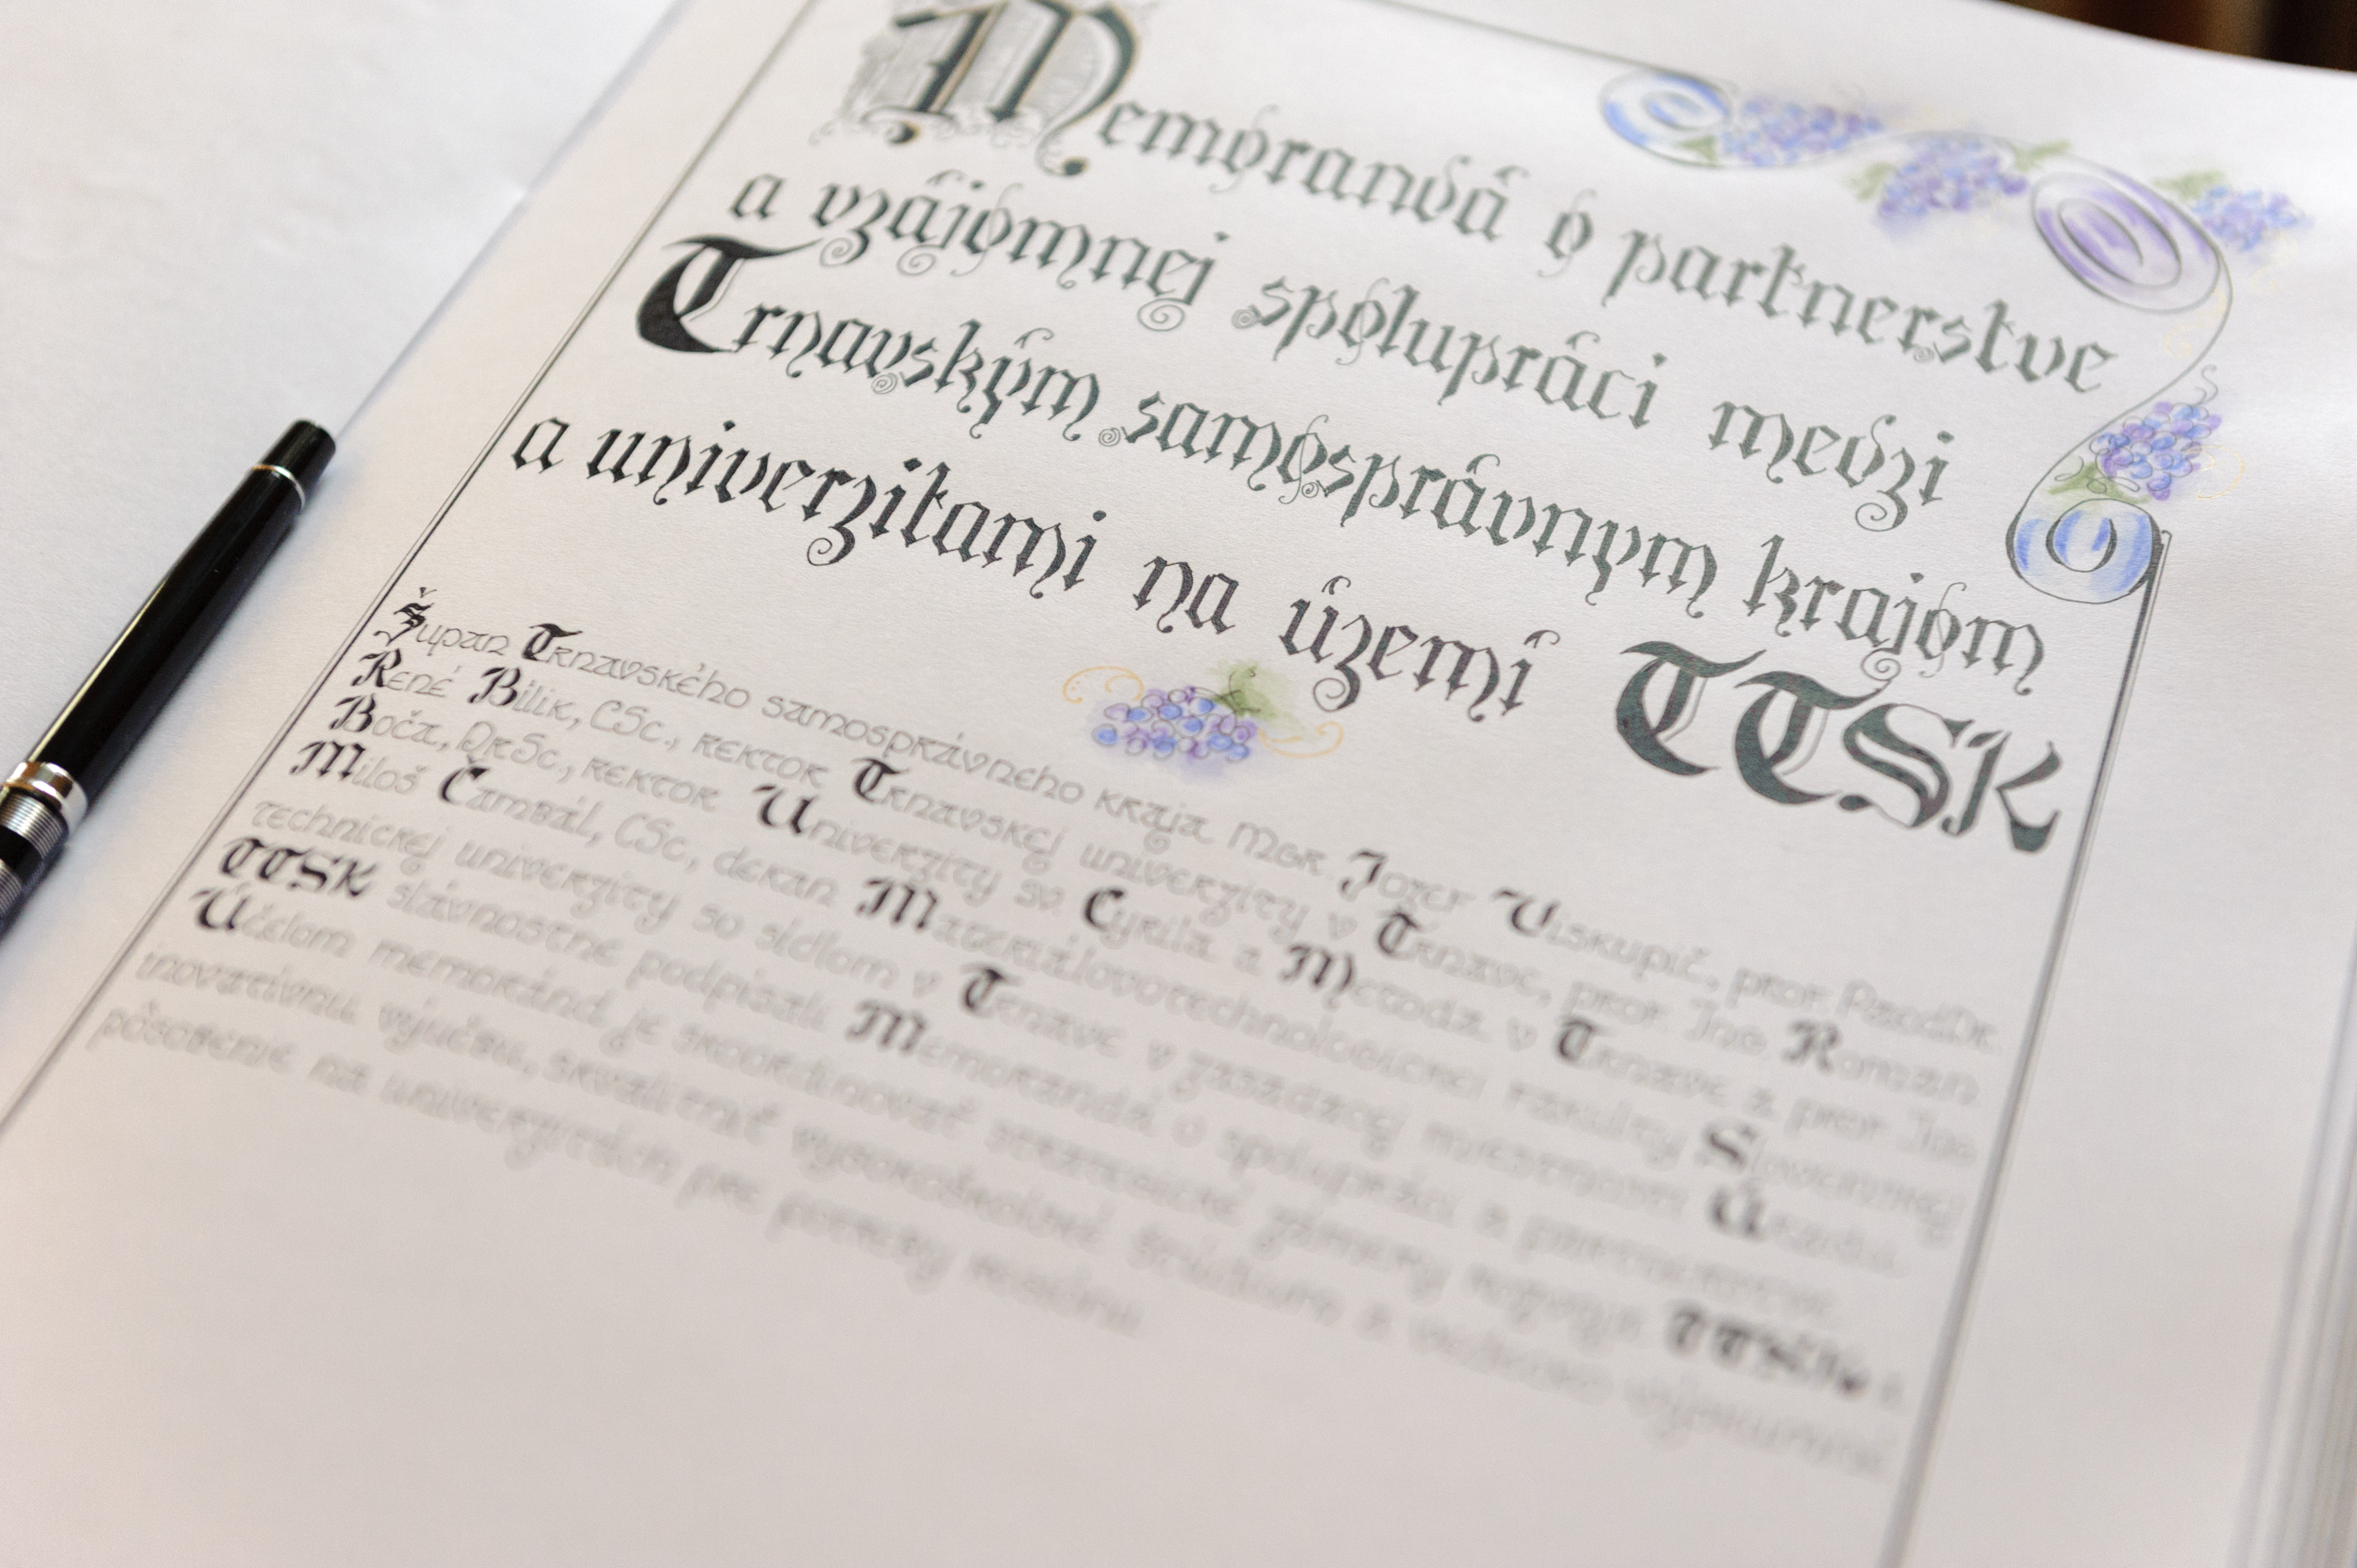 Memorandá o partnerstve
a vzájomnej spolupráci medzi
Trnavským samosprávnym krajom
a univerzitami na území TTSK
Župan Trnavského samosprávneho kraja Mgr Jozef Viskupič, prof. PaedDr.
René Bílik, CSc., rektor Trnavskej univerzity v Trnave, prof. Ing. Roman
Boča, DrSc., rektor Univerzity sv. Cyrila a Metoda v Trnave a prof. Ing.
Miloš Čambál, CSc., dekan Materiálovotechnologickej fakulty Slovenskej
technickej univerzity so sídlom v Trnave v zasadacej miestnosti Úradu
TTSK slávnostne podpísali Memorandá o spolupráci a partnerstve.
Účelom memoránd je skoordinovať strategické zámery rozvoja TTSK
inovatívnu výučbu, skvalitniť vysokoškolské štúdium a vedecko výskumné
pôsobenie na univerzitách pre potreby regiónu.